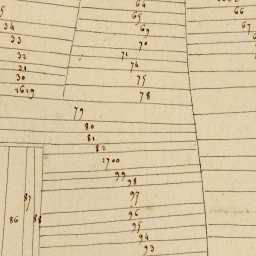 64
66
65
67
34
69
33
70
32
71
31
74
30
75
2629
78
79
80
81
82
2700
99
98
97
87
96
86
88
95
94
93